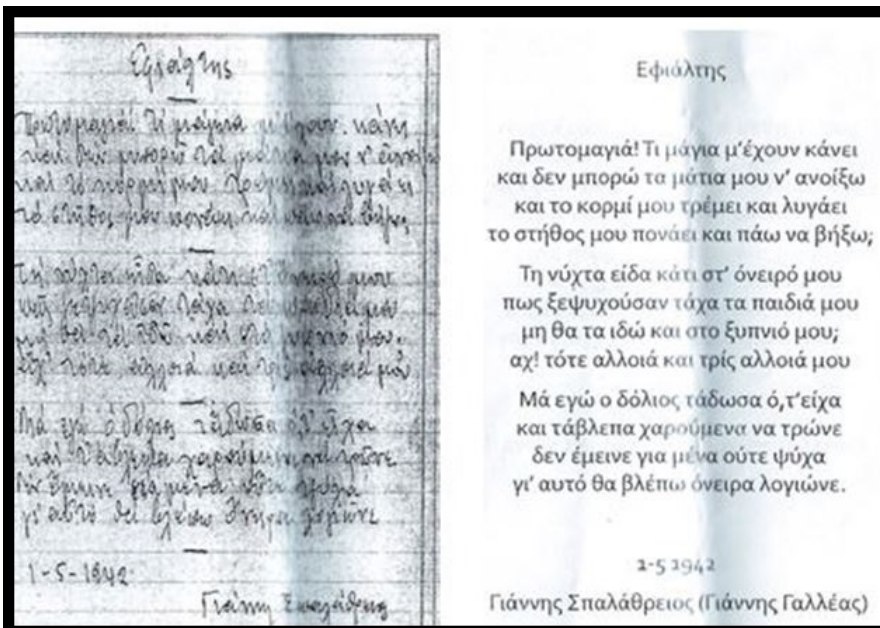 Εφιάλτης
Πρωτομαγιά! Τί μάγια μ' έχουν κάνη
καί δέν μπορώ τά μάτια μου ν' ανοίξω
καί τό κορμί μου τρέμει καί λυγάει
τό στήθος μου πονάει καί πάω νά βήξω;
Τή νύχτα είδα κάτι στ' όνειρό μου
πώς ξεψυχούσαν τάχα τά παιδιά μου
μή θά τά ιδώ καί στό ξυπνιό μου.
αχ! τότε αλλοιά καί τρίς αλλοιά μου
Μά εγώ ὁ δόλιος τάδωσα ό,τ' είχα
καί τάβλεπα χαρούμενα νά τρώνε
δέν έμεινε γιά μένα ούτε ψύχα
γι' αυτό θά βλέπω όνειρα λογιώνε
1-5-1942
Γιάννης Σπαλάθρειος
Εφιάλτης
Πρωτομαγιά! Τι μάγια μ'έχουν κάνει
και δεν μπορώ τα μάτια μου ν' ανοίξω
και το κορμί μου τρέμει και λυγάει
το στήθος μου πονάει και πάω να βήξω;
Τη νύχτα είδα κάτι στ' όνειρό μου
πως ξεψυχούσαν τάχα τα παιδιά μου
μη θα τα ιδώ και στο ξυπνιό μου;
αχ! τότε αλλοιά και τρίς αλλοιά μου
Μά εγώ ο δόλιος τάδωσα ό,τ'είχα
και τάβλεπα χαρούμενα να τρώνε
δεν έμεινε για μένα ούτε ψύχα
γι' αυτό θα βλέπω όνειρα λογιώνε.
2-5 1942
Γιάννης Σπαλάθρειος (Γιάννης Γαλλέας)